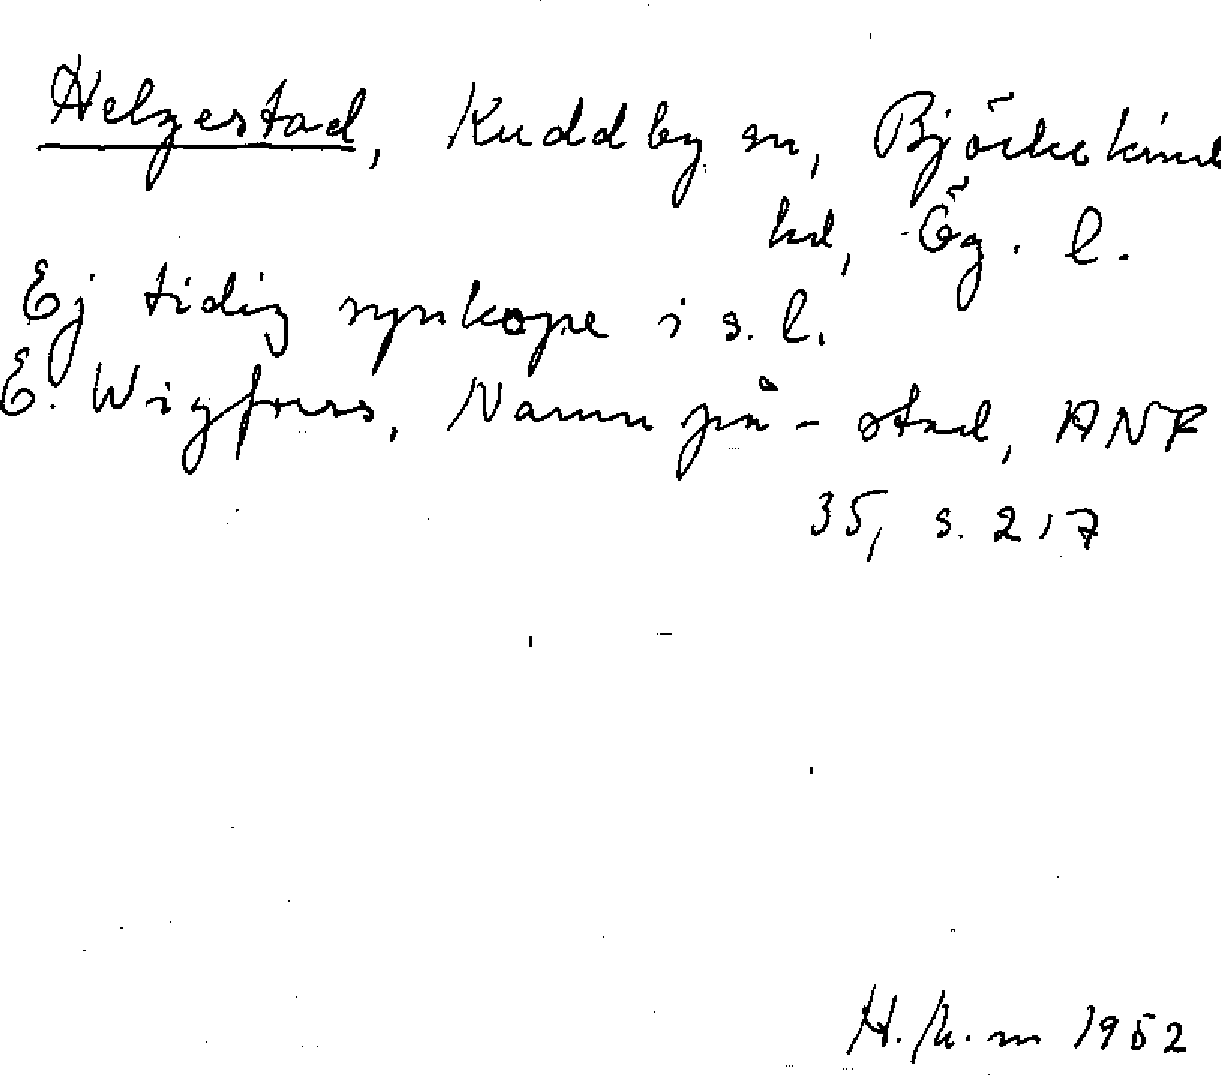 Helgestad, Kuddby sn, Björkekind
hd, Ög. l.
Ej tidig synkope i s. l.
E. Wigforss, Namn på -stad, ANF
35, s. 217
1952